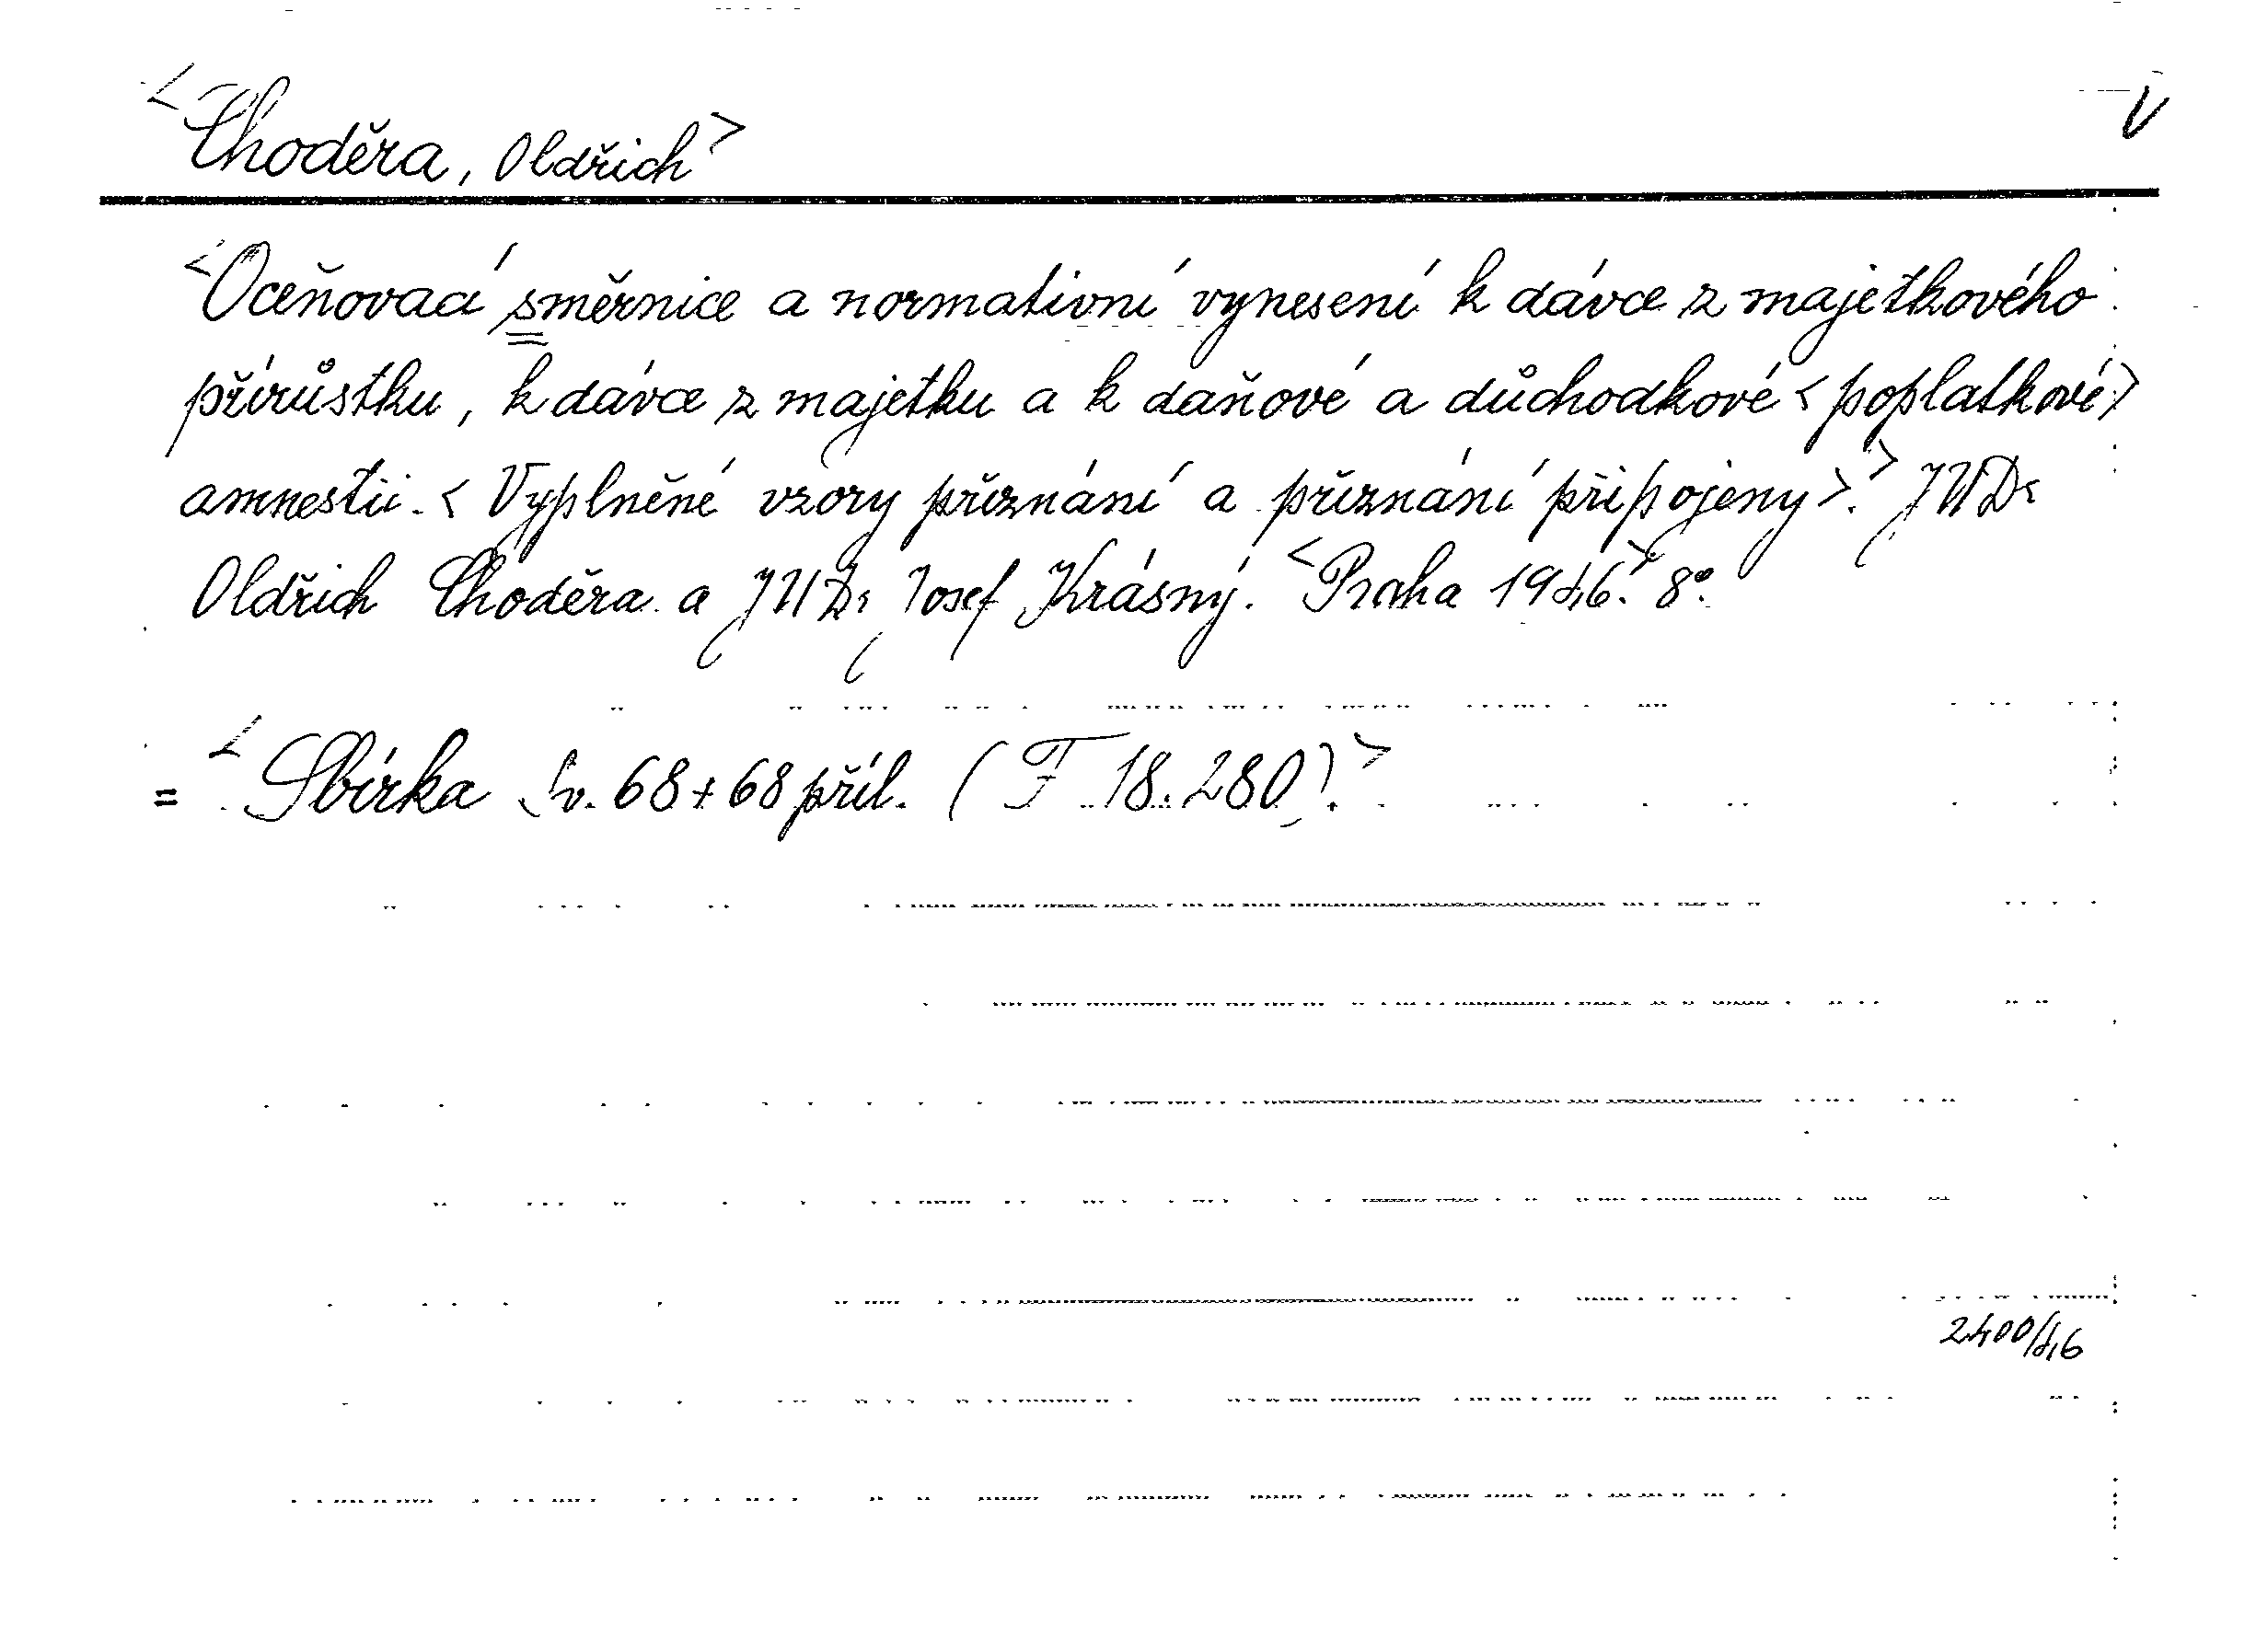 <Choděra, Oldřich> V
<Oceňovací směrnice a normativní vynesení k dávce z majetkového
přírůstku, k dávce z majetku a k daňové a důchodkové <poplatkové>
amnestii. <Vyplněné vzory přiznání a přiznání připojeny>.> JUDr
Oldřich Choděra a JUDr Josef Krásný. <Praha 1946.> 8°.
= <Sbírka Sv. 68 + 68 příl. (F 18.280).>
2400/46